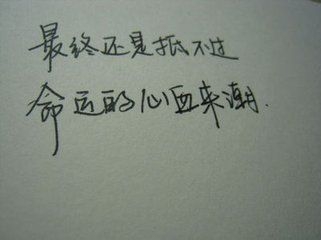 最终还是抵不过
命运的心血来潮.